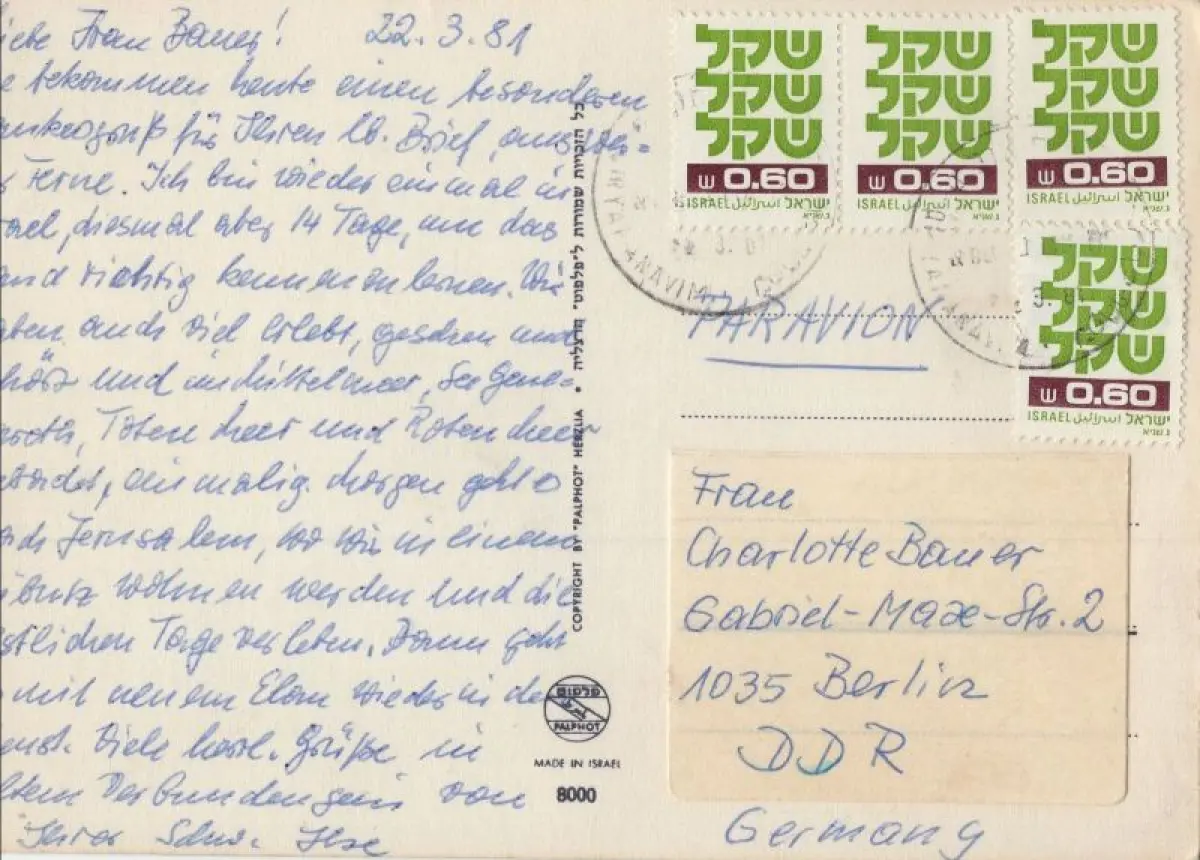 iebe Frau Bauer! 22.3.81
e bekommen heute einen besonderen
ankesgruß für Ihren lb. Brief, aus der
Ferne. Ich bin wieder einmal in
rael, diesmal aber 14 Tage, um das
and richtig kennenzulernen. Wir
aben auch viel erlebt, gesehen und
hört und im Mittelmeer, See Gene-
areth, Toten Meer und Roten Meer
einmalig. Morgen geht's
ach Jerusalem, wo wir in einem
ibbutz wohnen werden und die
stlichen Tage verleben. Dann geht
s mit neuem Elan wieder in de
enst. Viele herzl. Grüße in
ltem Verbundensein von
Ihrer Schw. Ilse
כל הזכויות שמורות ל"פלפוט" הרצליה • COPYRIGHT BY "PALPHOT" HERZLIA
פלפוט
PALPHOT
MADE IN ISRAEL
8000
שקל
שקל
שקל
ש 0.60
ISRAEL اسرائيل ישראל
שקל
שקל
שקל
ש 0.60
ISRAEL اسرائيل ישראל
שקל
שקל
שקל
ש 0.60
ISRAEL اسرائيل ישראל
שקל
שקל
שקל
ש 0.60
ISRAEL اسرائيل ישראל
ANAVIM
PAR AVION
Frau
Charlotte Bauer
Gabriel-Max-Str. 2
1035 Berlin
DDR
Germany